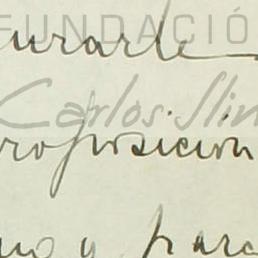 FUNDACIÓ
urarle
Carlos Slim
proposición
y para